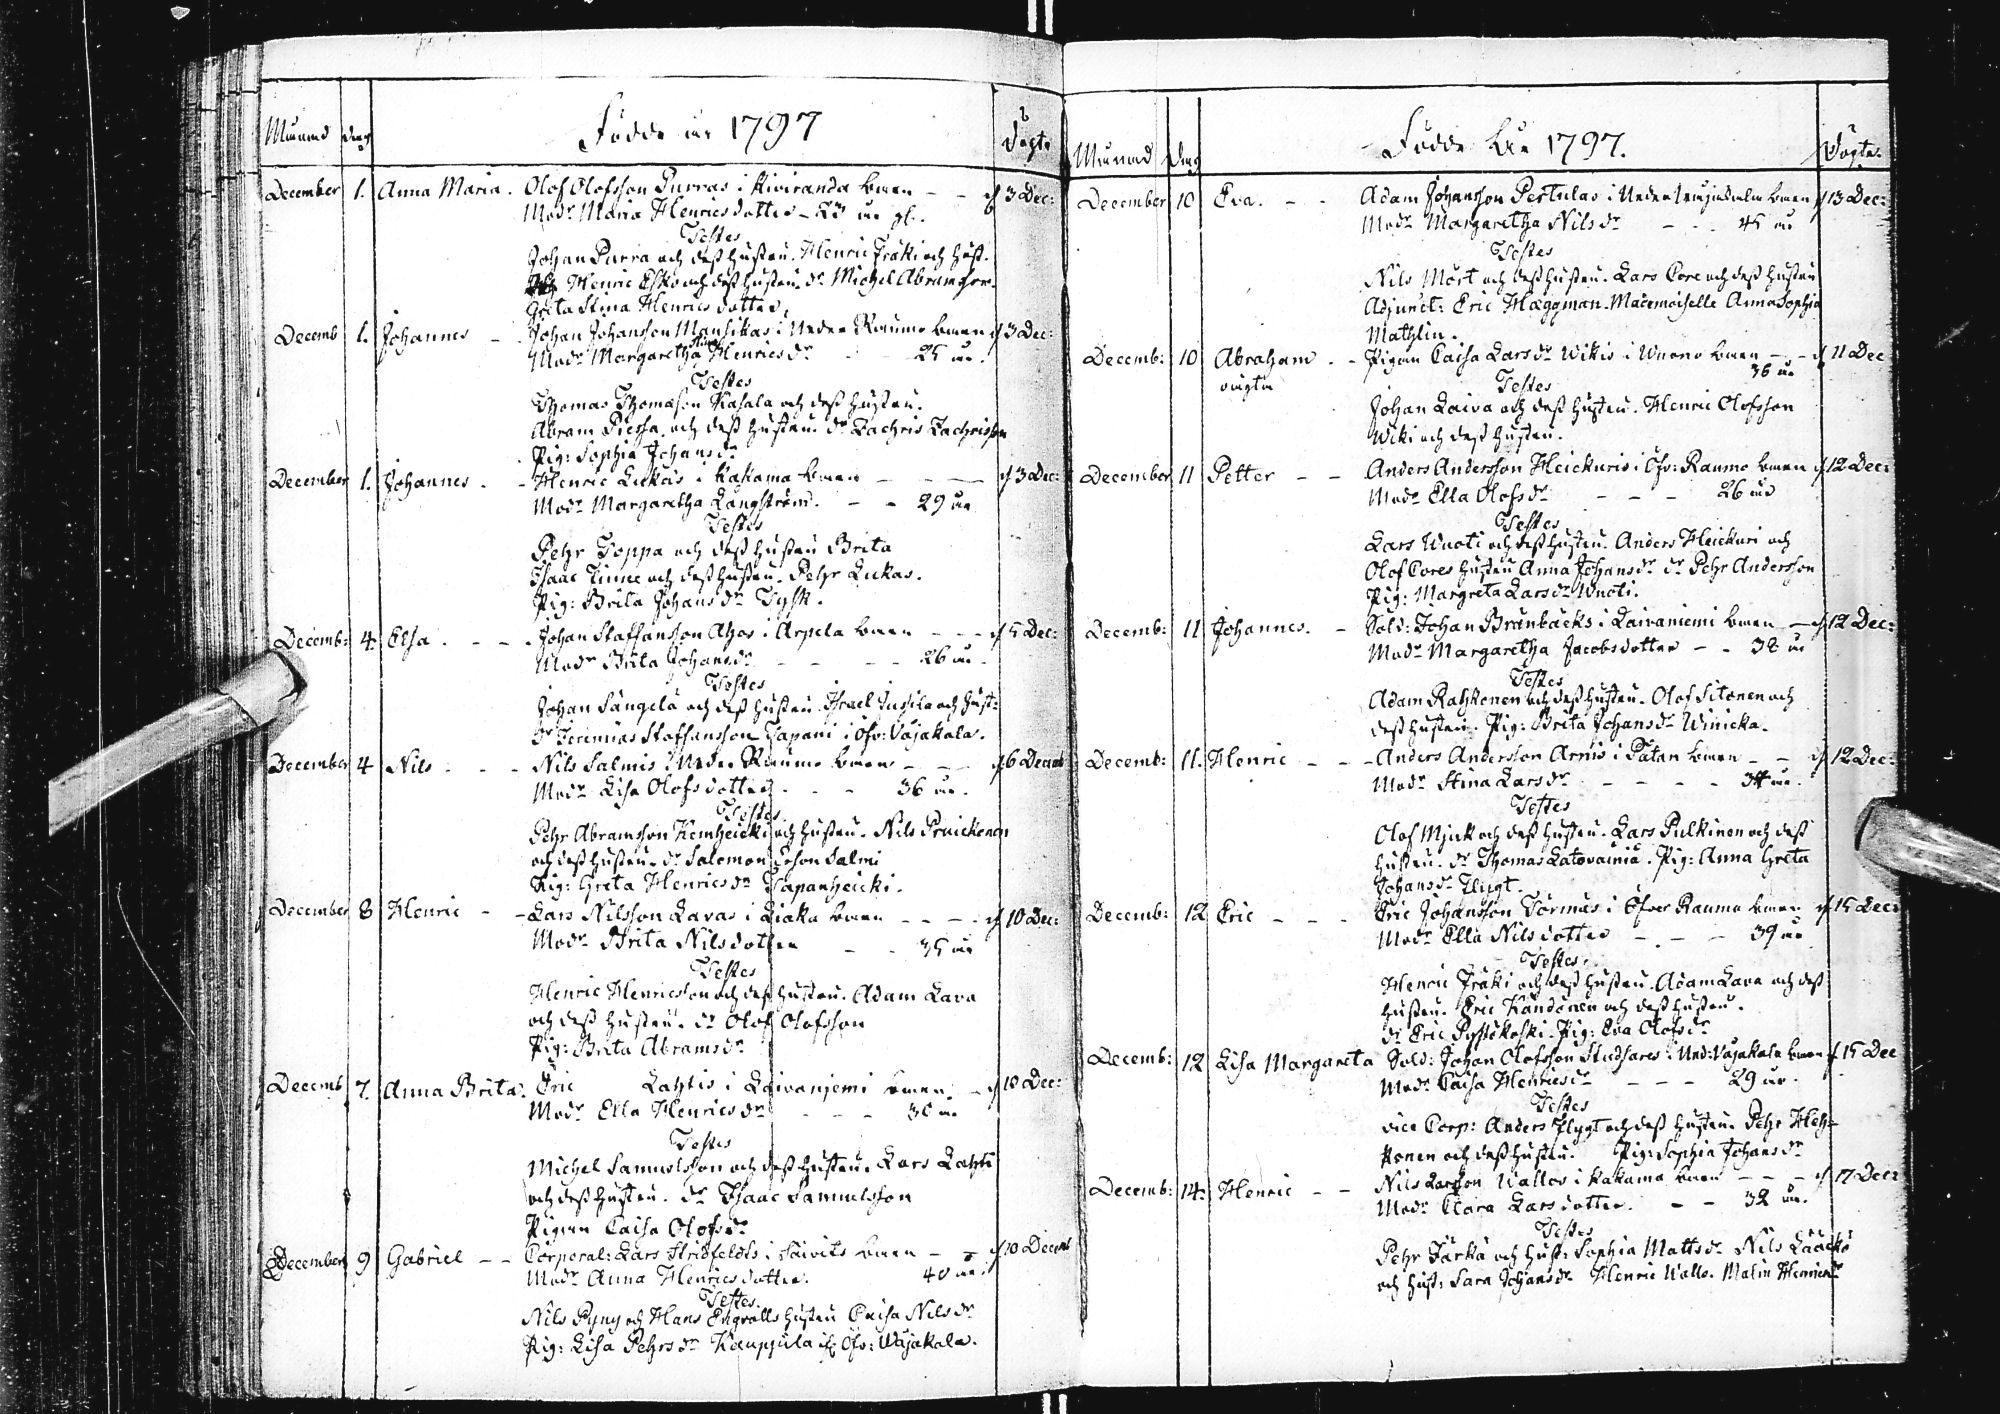 Månad dag Födde år 1797 Döpte
December 1. Anna Maria. Olof Olofsson Purras i Kiviranda barn - - d 3 Dec:
Modr Maria Henricsdotter - år gl.
Testes
Johan Purra och dess hustru. Henric Fräki och hust.
Henric Esko och dess hustru. dr Michel Abramsson.
Greta Stina Henricsdotter.
Decemb 1. Johannes - Johan Johansson Mansikas i Neder Raumo barn d 3 Dec:
Modr Margaretha Stina Henricsdr - - 25 år.
Testes
Thomas Thomasson Kasala och dess hustru.
Abram Piessa och dess hustru. dr Zachris Zachrisson
Pig: Sophia Johansdr
December 1. Johannes - - Henric Lukas i Kakama barn - - - d 3 Dec:
Modr Margaretha Långström. - - 29 år
Testes
Pehr Toppa och dess hustru Brita
Isaac Linne och dess hustru. Pehr Lukas.
Pig: Brita Johansdr Tysk.
Decemb: 4. Elsa - - - Johan Staffansson Alhos i Arpela barn - - - d 5 Dec:
Modr Brita Johansdr - - - - 26 år.
Testes
Johan Sångelä och dess hustru. Israel Jussila och hust:
Dr Jeremias Staffansson Tapani i Öfr: Vojakala.
December 4 Nils - - - Nils Salmis i Neder Raumo barn - - - d 6 Decemb
Modr Lisa Olofsdotter - - - 36 år.
Testes
Pehr Abramsson Kemheicki och hustru. Nils Pruickonen
och dess hustru. dr Salomon Johsson Salmi
Pig: Greta Henricsdr Tapanheicki.
December 8 Henric - - Lars Nilsson Lavas i Liaka barn - - - d 10 Dec:
Modr Brita Nilsdotter - - 35 år
Testes
Henric Henricsson och dess hustru. Adam Lava
och dess hustru. dr Olof Olofsson
Pig: Brita Abramsdr
Decemb 7. Anna Brita. Eric Lahtis i Laivanjemi barn. - d 10 Dec:
Modr Ella Henricsdr - - - 30 år
Testes
Michel Samuelsson och dess hustru. Lars Lahti
och dess hustru. dr Isaac Samuelsson
Pigan Caisa Olofsdr
December 9 Gabriel - - Corporal: Lars Stridfeldts i Saivits barn - - d 10 Decemb
Modr Anna Henricsdotter. 40 år.
Testes
Nils Pyny och Hans Engvalls hustru Caisa Nilsdr
Pig: Lisa Pehrsdr Kauppila i Öfr: Wojakala.
Månad Dag Födde År 1797. Döpte.
December 10 Eva. - - Adam Johansson Pertulas i Neder barn d 13 Dec:
Modr Margaretha Nilsdr - - - 45 år
Testes
Nils Mört och dess hustru. Lars Core och dess hustru
Adjunct: Eric Hæggman. Mademoiselle Anna Sophia
Mathlin.
Decemb: 10 Abraham - - Pigan Caisa Larsdr Wikis i Wuono barn - - d 11 Dec
oägta 36 år
Testes
Johan Laiva och dess hustru. Henric Olofsson
Wiki och dess hustru.
December 11 Petter - - Anders Andersson Heickuris i Öfv: Raumo barn d 12 Dec:
Modr Ella Olofsdr - - - 26 år
Testes
Lars Wuoti och dess hustru. Anders Heickuri och
Olof Cores hustru Anna Johansdr dr Pehr Andersson
Pig: Margreta Larsdr Wuoti.
Decemb: 11 Johannes. - Sold: Johan Brunbäcks i Laivaniemi barn - d 12 Dec:
Modr Margaretha Jacobsdotter - - 38 år
Testes
Adam Rahkonen och dess hustru. Olof Sitonen och
dess hustru. Pig: Brita Johansdr Winicka.
Decemb: 11. Henric - - - Anders Andersson Arnis i Pätan barn - - d 12 Dec:
Modr Stina Larsdr - - - - 34 år.
Testes
Olof Mjuk och dess hustru. Lars Pulkinen och dess
hustru. dr Thomas Latovainia. Pig: Anna Greta
Johansdr Flygt.
Decemb: 12 Eric - - - Eric Johansson Törmas i Öfver Raumo barn d 15 Dec:
Modr Ella Nilsdotter - - - 39 år
Testes.
Henric Fräki och dess hustru. Adam Lava och dess
hustru. Eric Kandonen och dess hustru.
dr Eric Pyssökoski. Pig: Eva Olofsdr
Decemb: 12 Lisa Margareta Sold: Johan Olofsson Studsares i Ned: Vojakala barn d 15 Dec
Modr Caisa Henricsdr - - - 29 år.
Testes
vice Corp: Anders Flygt och dess hustru. Pehr Heh-
konen och dess hustru. Pig: Sophia Johansdr
Decemb: 14. Henric - - Nils Larsson Wallos i Kakama barn - - - d 17 Dec:
Modr Clara Larsdotter. - - 32 år.
Testes
Pehr Järkä och Hust: Sophia Mattsdr Nils Lääckö
och Hust: Sara Johansdr Henric Wallo. Malin Henricsdr